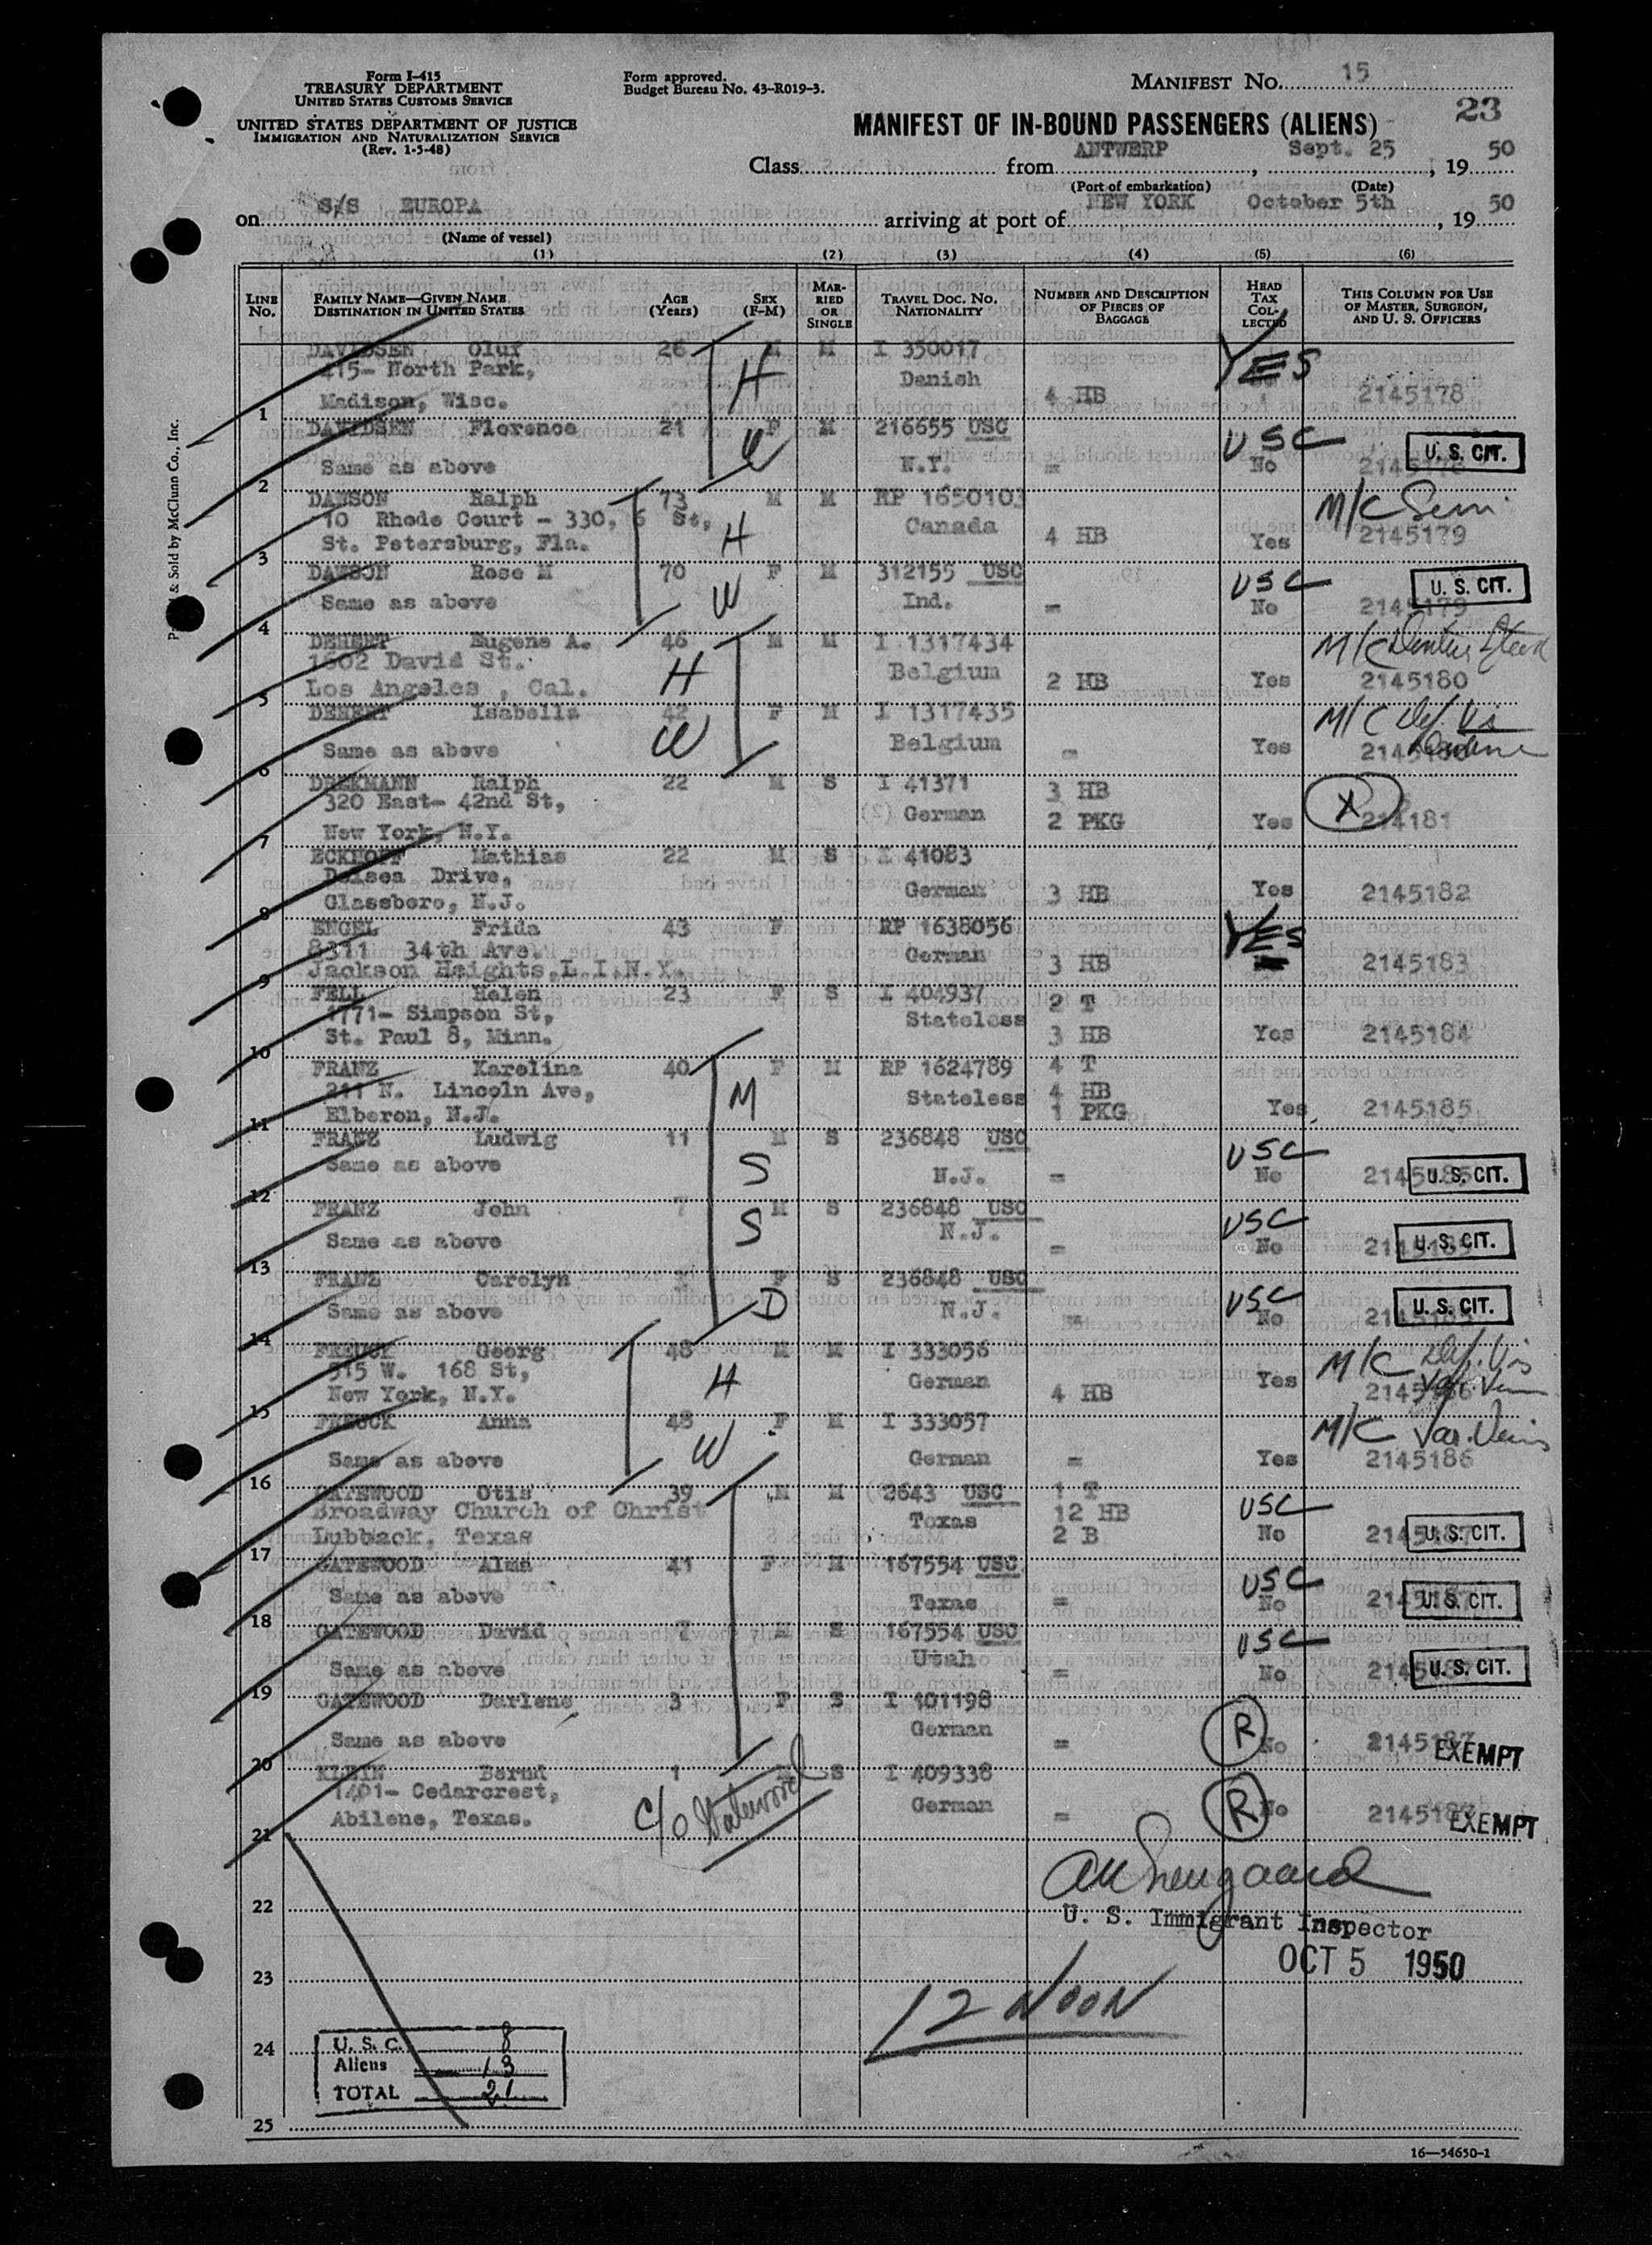 Form I-415
TREASURY DEPARTMENT
UNITED STATES CUSTOMS SERVICE
UNITED STATES DEPARTMENT OF JUSTICE
IMMIGRATION AND NATURALIZATION SERVICE
(Rev. 1-5-48)
Form approved.
Budget Bureau No. 43-R019-3.
MANIFEST No. 15
23
MANIFEST OF IN-BOUND PASSENGERS (ALIENS)
Class from ANTWERP, Sept. 25, 1950
(Port of embarkation) (Date)
on S/S EUROPA arriving at port of NEW YORK October 5th, 1950
(Name of vessel)
(1) (2) (3) (4) (5) (6)
LINE No. FAMILY NAME—GIVEN NAME DESTINATION IN UNITED STATES AGE (Years) SEX (F-M) MARRIED OR SINGLE TRAVEL DOC. NO. NATIONALITY NUMBER AND DESCRIPTION OF PIECES OF BAGGAGE HEAD TAX COLLECTED THIS COLUMN FOR USE OF MASTER, SURGEON, AND U. S. OFFICERS
DAVIDSEN Oluf 26 M M I 350017 YES
415- North Park, H Danish
1 Madison, Wisc. 4 HB 2145178
DAVIDSEN Florence 21 F M 216655 USC USC U. S. CIT.
2 Same as above W N.Y. = No
DAWSON Ralph 73 M M RP 1650103 M/C
10 Rhode Court - 330, 6 St, H Canada
3 St. Petersburg, Fla. 4 HB Yes 2145179
DAWSON Rose M 70 F M 312155 USC USC U. S. CIT.
4 Same as above W Ind. = No 2145179
DEHERT Eugene A. 46 M M I 1317434 M/C
1602 David St. H Belgium
5 Los Angeles , Cal. 2 HB Yes 2145180
DEHERT Isabella 42 F M I 1317435 M/C
6 Same as above W Belgium = Yes
DREKMANN Ralph 22 M S I 41371 3 HB
320 East- 42nd St, German
7 New York, N.Y. 2 PKG Yes 214181
ECKHOFF Mathias 22 M S I 41083
Delsea Drive, German
8 Glassboro, N.J. 3 HB Yes 2145182
ENGEL Frida 43 F RP 1638056 YES
8311 34th Ave. German
9 Jackson Heights,L.I.N.Y. 3 HB 2145183
FELL Helen 23 F S I 404937 2 T
1771- Simpson St, Stateless
10 St. Paul 8, Minn. 3 HB Yes 2145184
FRANZ Karolina 40 F M RP 1624789 4 T
211 N. Lincoln Ave, M Stateless 4 HB
11 Elberon, N.J. 1 PKG Yes 2145185
FRANZ Ludwig 11 M S 236848 USC USC
12 Same as above S N.J. = No U. S. CIT.
FRANZ John 7 M S 236848 USC USC
13 Same as above S N.J. = No U. S. CIT.
FRANZ Carolyn F S 236848 USC USC
14 Same as above D N.J. = No U. S. CIT.
FREUCK Georg 48 M M I 333056 M/C
515 W. 168 St, H German
15 New York, N.Y. 4 HB Yes
FREUCK Anna 48 F M I 333057 M/C
16 Same as above W German = Yes 2145186
GATEWOOD Otis 39 M M 2643 USC 1 T USC
Broadway Church of Christ Texas 12 HB
17 Lubback, Texas 2 B No U. S. CIT.
GATEWOOD Alma 41 F M 167554 USC USC
18 Same as above Texas = No U. S. CIT.
GATEWOOD David 7 M S 167554 USC USC
19 Same as above Utah = No U. S. CIT.
GATEWOOD Darlene 3 F S I 401198
20 Same as above German = R No 2145187 EXEMPT
KLEIN Bernd 1 M S I 409338
1401- Cedarcrest, c/o Gatewood
21 Abilene, Texas. German = R No 2145187 EXEMPT
22 U. S. Immigrant Inspector
OCT 5 1950
23
12 NOON
24
U. S. C. 8
Aliens 13
TOTAL 21
25
16—54650-1
& Sold by McClunn Co., Inc.